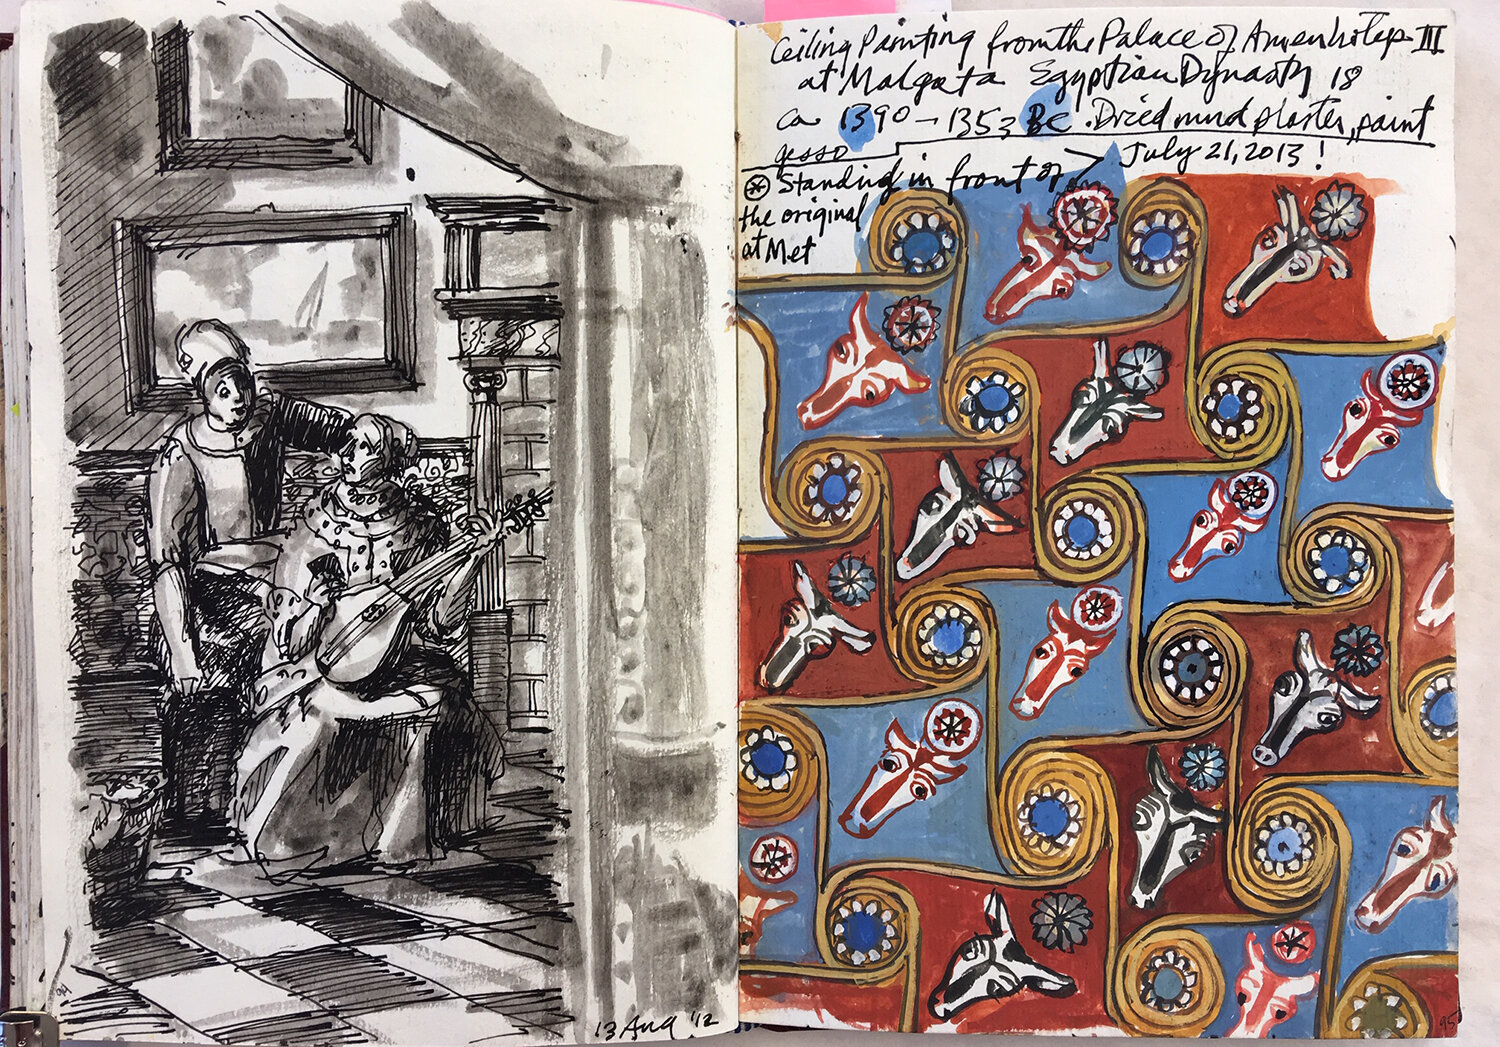 94
13 Aug '12
Ceiling Painting from the Palace of Amenhotep III
at Malqata Egyptian Dynasty 18
ca 1390 – 1353 BC . Dried mud plaster, paint
gesso
July 21, 2013 !
Standing in front of >
the original
at Met
95